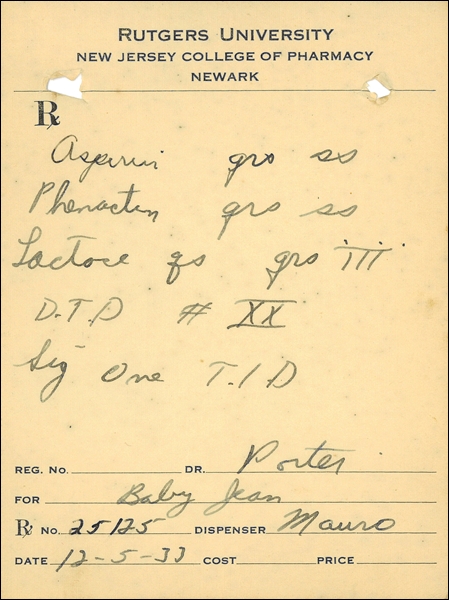 RUTGERS UNIVERSITY
NEW JERSEY COLLEGE OF PHARMACY
NEWARK
℞
Aspirin grs ss
Phenactin grs ss
Lactose qs grs iii
D.T.D # XX
Sig One T.I.D
REG. NO. DR. Porter
FOR Baby Jean
℞ NO. 25125 DISPENSER Mauro
DATE 12-5-33 COST PRICE